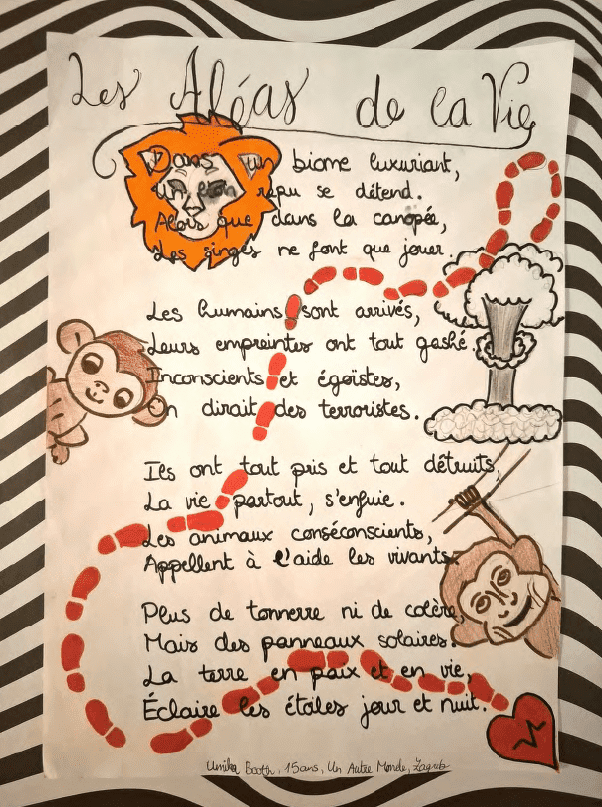 Les Aléas de la Vie
Dans un biome luxuriant,
Un lion repu se détend.
Alors que dans la canopée,
Les singes ne font que jouer.
Les humains sont arrivés,
Leurs empreintes ont tout gashé.
Inconscients et égoïstes,
On dirait des terroristes.
Ils ont tout pris et tout détruits,
La vie partout, s'enfuie.
Les animaux conséconscients,
Appellent à l'aide les vivants.
Plus de tonnerre ni de colère,
Mais des panneaux solaires.
La terre en paix et en vie,
Éclaire les étoles jour et nuit.
Booth, 15 ans, Un Autre Monde, Zagreb